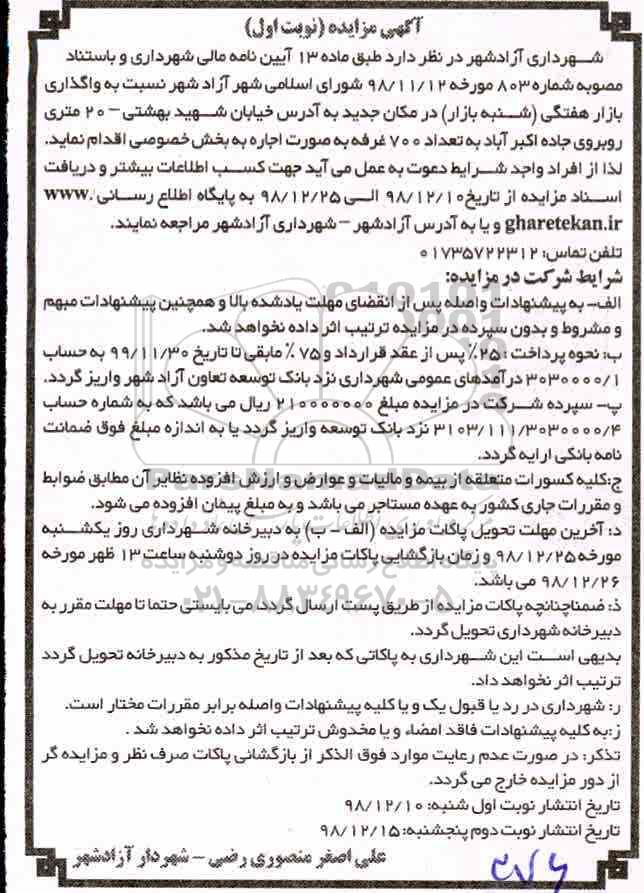 آگهی مزایده (نوبت اول)
شهرداری آزادشهر در نظر دارد طبق ماده ۱۳ آیین نامه مالی شهرداری و باستناد
مصوبه شماره ۸۰۳ مورخه ۹۸/۱۱/۱۲ شورای اسلامی شهر آزاد شهر نسبت به واگذاری
بازار هفتگی (شنبه بازار) در مکان جدید به آدرس خیابان شهید بهشتی – ۲۰ متری
روبروی جاده اکبر آباد به تعداد ۷۰۰ غرفه به صورت اجاره به بخش خصوصی اقدام نماید.
لذا از افراد واجد شرایط دعوت به عمل می آید جهت کسب اطلاعات بیشتر و دریافت
اسناد مزایده از تاریخ ۹۸/۱۲/۱۰ الی ۹۸/۱۲/۲۵ به پایگاه اطلاع رسانی www.
gharetekan.ir و یا به آدرس آزادشهر – شهرداری آزادشهر مراجعه نمایند.
تلفن تماس: ۰۱۷۳۵۷۲۲۳۱۲
شرایط شرکت در مزایده:
الف- به پیشنهادات واصله پس از انقضای مهلت یادشده بالا و همچنین پیشنهادات مبهم
و مشروط و بدون سپرده در مزایده ترتیب اثر داده نخواهد شد.
ب: نحوه پرداخت: ۲۵٪ پس از عقد قرارداد و ۷۵ ٪ مابقی تا تاریخ ۹۹/۱۱/۳۰ به حساب
۳۰۳۰۰۰۰/۱ درآمدهای عمومی شهرداری نزد بانک توسعه تعاون آزاد شهر واریز گردد.
پ- سپرده شرکت در مزایده مبلغ ۲۱۰۰۰۰۰۰۰۰ ریال می باشد که به شماره حساب
۳۱۰۳/۱۱۱/۳۰۳۰۰۰۰/۴ نزد بانک توسعه واریز گردد یا به اندازه مبلغ فوق ضمانت
نامه بانکی ارایه گردد.
ج: کلیه کسورات متعلقه از بیمه و مالیات و عوارض و ارزش افزوده نظایر آن مطابق ضوابط
و مقررات جاری کشور به عهده مستاجر می باشد و به مبلغ پیمان افزوده می شود.
د: آخرین مهلت تحویل پاکات مزایده (الف – ب) به دبیرخانه شهرداری روز یکشنبه
مورخه ۹۸/۱۲/۲۵ و زمان بازگشایی پاکات مزایده در روز دوشنبه ساعت ۱۳ ظهر مورخه
۹۸/۱۲/۲۶ می باشد.
ذ: ضمنا چنانچه پاکات مزایده از طریق پست ارسال گردد می بایستی حتما تا مهلت مقرر به
دبیرخانه شهرداری تحویل گردد.
بدیهی است این شهرداری به پاکاتی که بعد از تاریخ مذکور به دبیرخانه تحویل گردد
ترتیب اثر نخواهد داد.
ر: شهرداری در رد یا قبول یک و یا کلیه پیشنهادات واصله برابر مقررات مختار است.
ز: به کلیه پیشنهادات فاقد امضاء و یا مخدوش ترتیب اثر داده نخواهد شد .
تذکر: در صورت عدم رعایت موارد فوق الذکر از بازگشائی پاکات صرف نظر و مزایده گر
از دور مزایده خارج می گردد.
تاریخ انتشار نوبت اول شنبه: ۹۸/۱۲/۱۰
تاریخ انتشار نوبت دوم پنجشنبه: ۹۸/۱۲/۱۵
علی اصغر منصوری رضی – شهردار آزادشهر
ParsNamadData
پایگاه اطلاع رسانی مناقصه و مزایده
۰۲۱-۸۸۳۴۹۶۷۰-۵